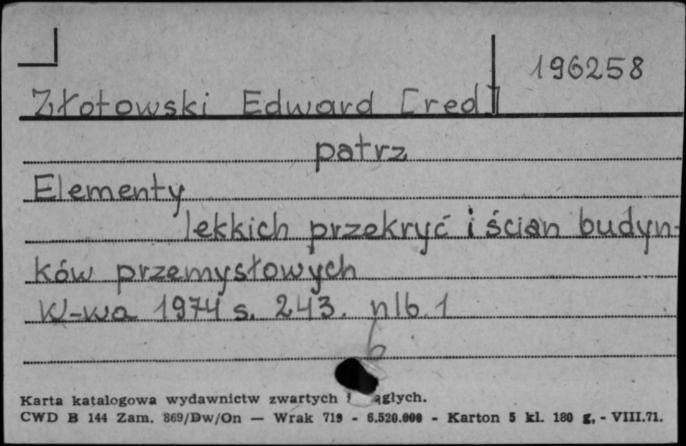 196258
Złotowski Edward [red]
patrz
Elementy
lekkich przekryć i ścian budyn-
ków przemysłowych
W-wa 1974 s. 243. nlb. 1
6
Karta katalogowa wydawnictw zwartych i ągłych.
CWD B 144 Zam. 869/Dw/On — Wrak 719 - 6.520.000 - Karton 5 kl. 180 g. - VIII.71.